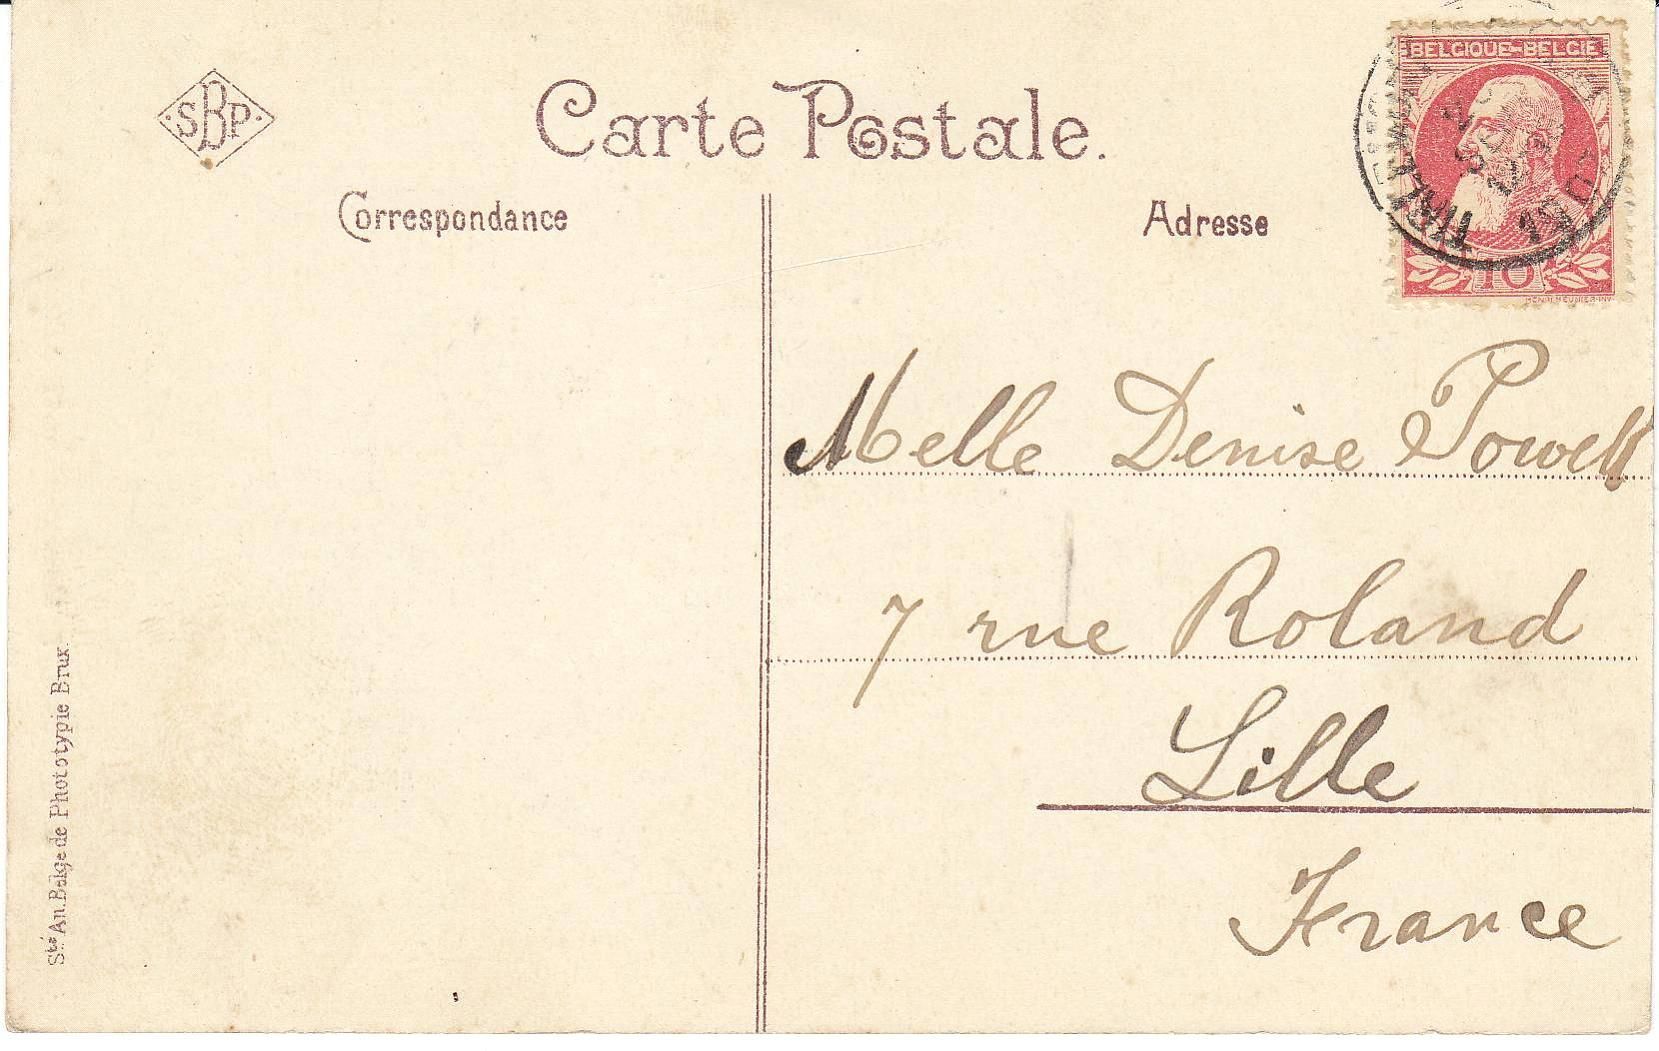 SBP
Carte Postale.
Correspondance
Adresse
BELGIQUE-BELGIË
10
HENRI MEUNIER-INV
Melle Denise Powell
7 rue Roland
Lille
France
Sté An. Belge de Phototypie Brux.